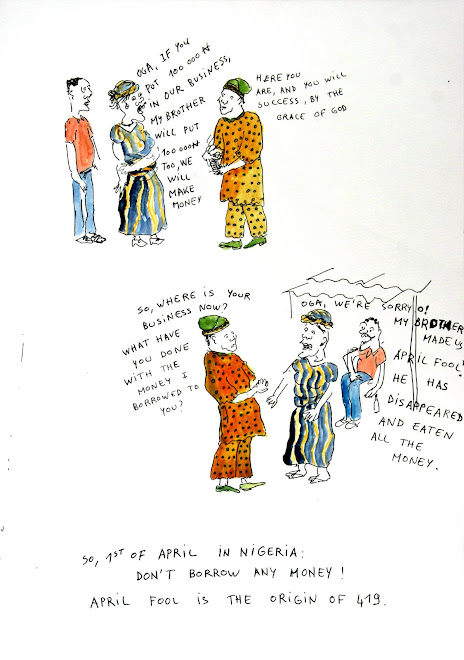 OGA, IF YOU
PUT 100 000 ₦
IN OUR BUSINESS,
MY BROTHER
WILL PUT
100 000₦
TOO, WE
WILL
MAKE
MONEY
HERE YOU
ARE, AND YOU WILL
SUCCESS, BY THE
GRACE OF GOD
SO, WHERE IS YOUR
BUSINESS NOW?
WHAT HAVE
YOU DONE
WITH THE
MONEY I
BORROWED TO
YOU?
OGA, WE'RE SORRY O!
MY BROTHER
MADE US
APRIL FOOL!
HE HAS
DISAPPEARED
AND EATEN
ALL THE
MONEY.
SO, 1ST OF APRIL IN NIGERIA:
DON'T BORROW ANY MONEY!
APRIL FOOL IS THE ORIGIN OF 419.